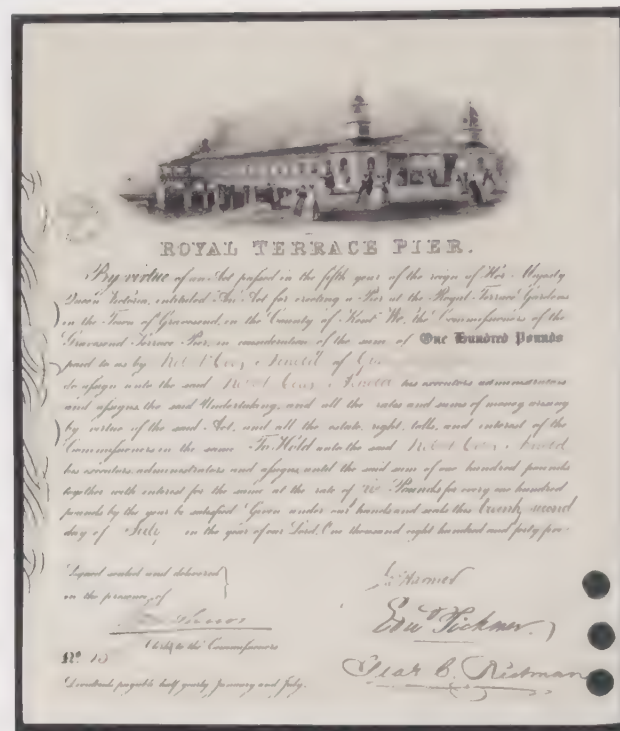 ROYAL TERRACE PIER.
By virtue of an Act passed in the fifth year of the reign of Her Majesty
Queen Victoria, intituled An Act for erecting a Pier at the Royal Terrace Gardens
in the Town of Gravesend, in the County of Kent We, the Commissioners of the
Gravesend Terrace Pier, in consideration of the sum of One Hundred Pounds
paid to us by of
do assign unto the said his executors administrators
and assigns, the said Undertaking, and all the rates and sums of money arising
by virtue of the said Act, and all the estate, right, tolls, and interest of the
Commissioners in the same To Hold unto the said
his executors, administrators and assigns, until the said sum of one hundred pounds
together with interest for the same at the rate of Pounds for every one hundred
pounds by the year be satisfied Given under our hands and seals this twenty second
day of July in the year of our Lord, One thousand eight hundred and forty
Signed sealed and delivered
in the presence of
Clerk to the Commissioners
No 15
Dividends payable half yearly January and July.